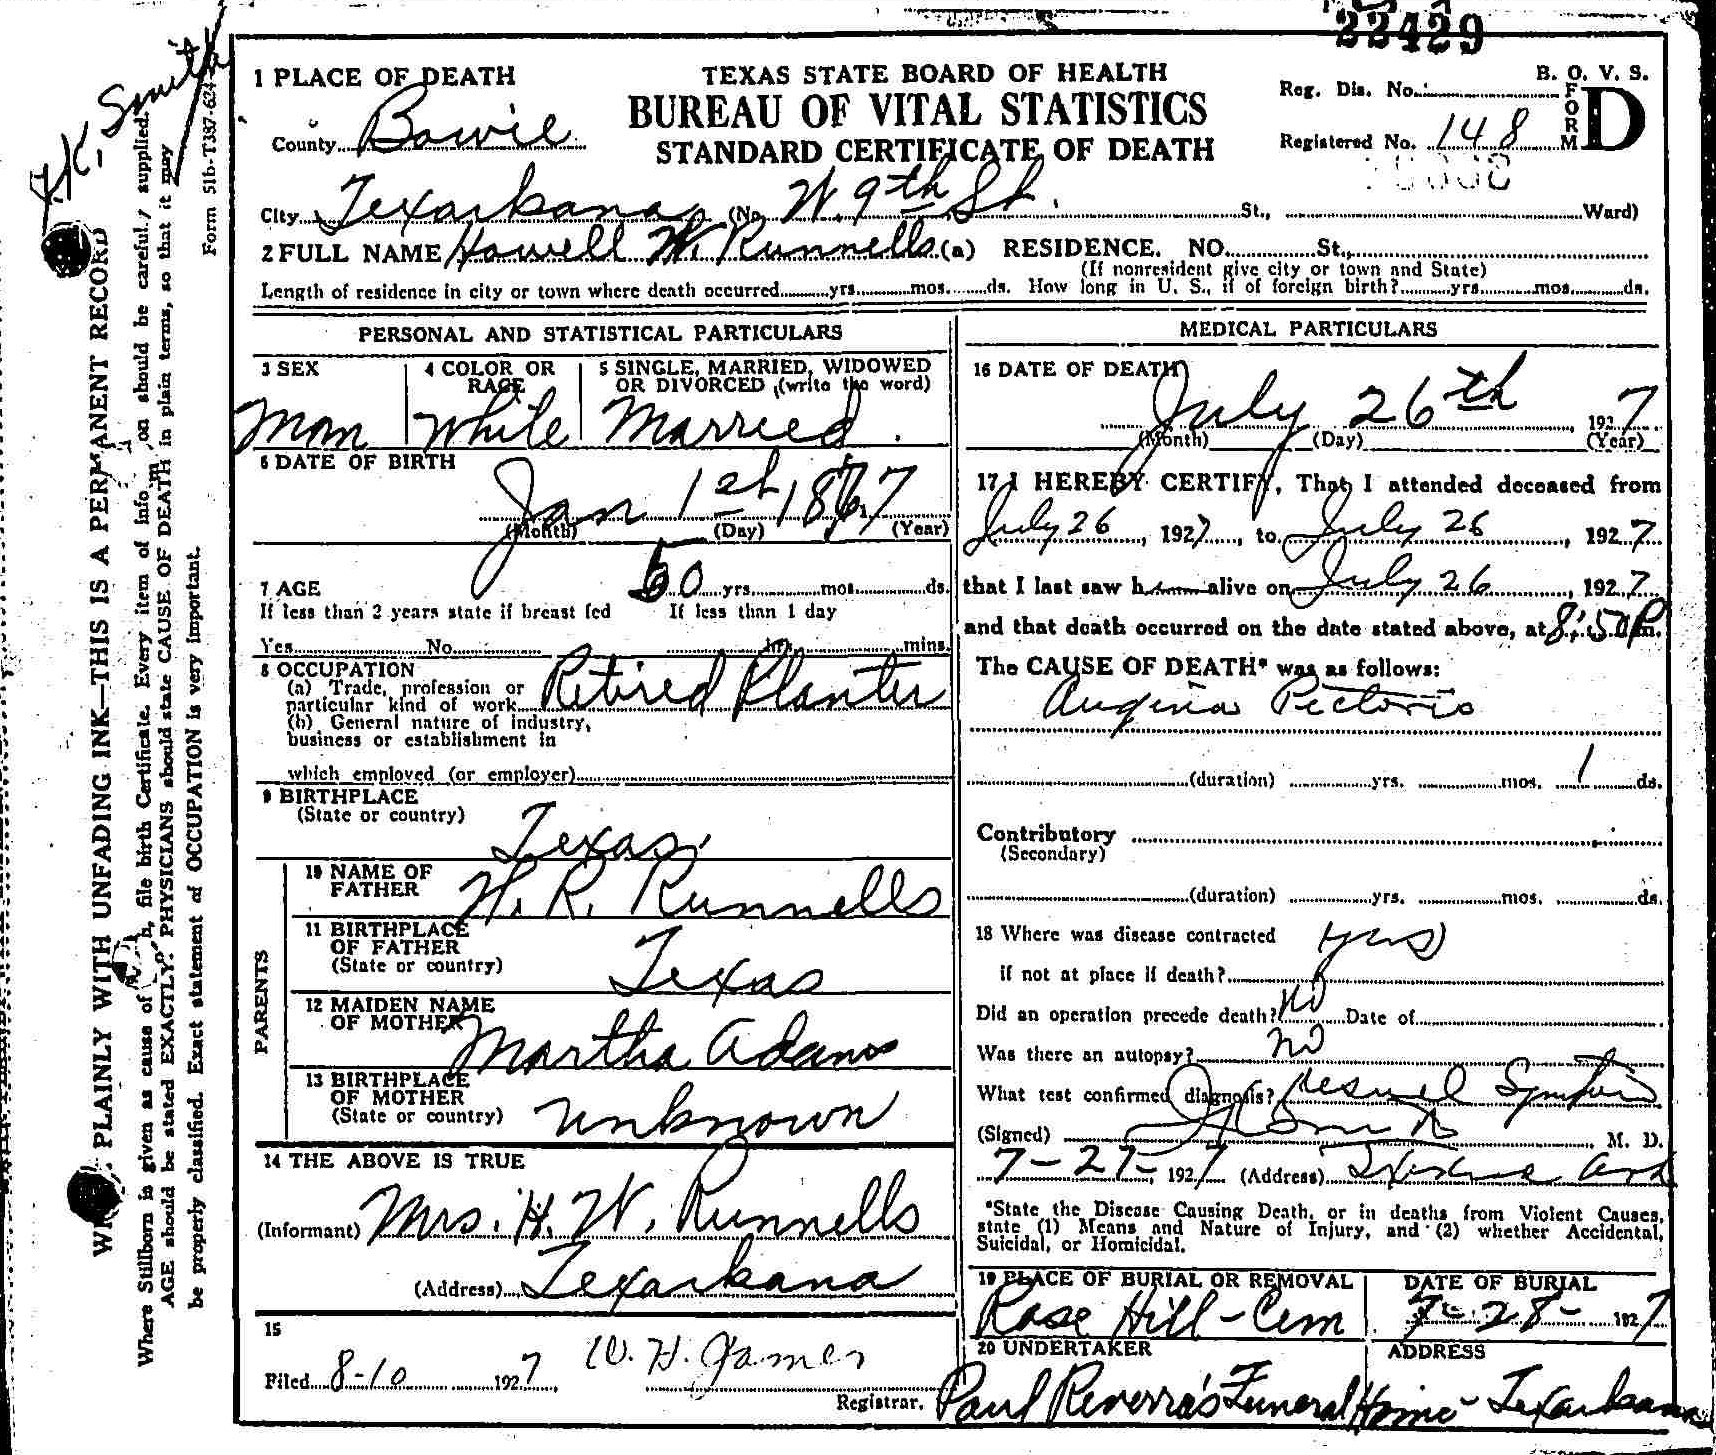 22429
1 PLACE OF DEATH
TEXAS STATE BOARD OF HEALTH
BUREAU OF VITAL STATISTICS
STANDARD CERTIFICATE OF DEATH
B. O. V. S.
FORM D
Reg. Dis. No.
Registered No. 148
County Bowie
City Texarkana (No. W. 9th St. St., Ward)
2 FULL NAME Howell W. Runnells (a) RESIDENCE. NO. St.,
(If nonresident give city or town and State)
Length of residence in city or town where death occurred yrs. mos. ds. How long in U. S., if of foreign birth? yrs. mos. ds.
PERSONAL AND STATISTICAL PARTICULARS
3 SEX
Man
4 COLOR OR RACE
White
5 SINGLE, MARRIED, WIDOWED
OR DIVORCED (write the word)
Married.
6 DATE OF BIRTH
Jan 1st 1867
(Month) (Day) (Year)
7 AGE 60 yrs. mos. ds.
If less than 2 years state if breast fed If less than 1 day
Yes No hrs. mins.
8 OCCUPATION
(a) Trade, profession or
particular kind of work Retired Planter
(b) General nature of industry,
business or establishment in
which employed (or employer)
9 BIRTHPLACE
(State or country)
Texas.
PARENTS
10 NAME OF
FATHER
H. R. Runnells
11 BIRTHPLACE
OF FATHER
(State or country)
Texas
12 MAIDEN NAME
OF MOTHER
Martha Adams
13 BIRTHPLACE
OF MOTHER
(State or country)
unknown
14 THE ABOVE IS TRUE
(Informant) Mrs. H. W. Runnells
(Address) Texarkana
15
Filed 8-10 1927 W. H. James
Registrar.
MEDICAL PARTICULARS
16 DATE OF DEATH
July 26th, 1927
(Month) (Day) (Year)
17 I HEREBY CERTIFY, That I attended deceased from
July 26, 1927, to July 26, 1927
that I last saw him alive on July 26, 1927
and that death occurred on the date stated above, at 8:50 P.m.
The CAUSE OF DEATH* was as follows:
Angina Pectoris
(duration) yrs. mos. 1 ds.
Contributory
(Secondary)
(duration) yrs. mos. ds.
18 Where was disease contracted yes
if not at place if death?
Did an operation precede death? no Date of
Was there an autopsy? no
What test confirmed diagnosis?
(Signed) Smith M. D.
7-27-, 1927 (Address) Ark
*State the Disease Causing Death, or in deaths from Violent Causes,
state (1) Means and Nature of Injury, and (2) whether Accidental,
Suicidal, or Homicidal.
19 PLACE OF BURIAL OR REMOVAL
Rose Hill-Cem
DATE OF BURIAL
7-28-1927
20 UNDERTAKER
ADDRESS
Paul Funeral Home - Texarkana
J.K. Smith
PLAINLY WITH UNFADING INK—THIS IS A PERMANENT RECORD
Where Stillborn is given as cause of file birth Certificate. Every item of should be careful supplied.
AGE should be stated EXACTLY. PHYSICIANS should state CAUSE OF DEATH in plain terms, so that it may
be properly classified. Exact statement of OCCUPATION is very important.
Form 51b-T387-624